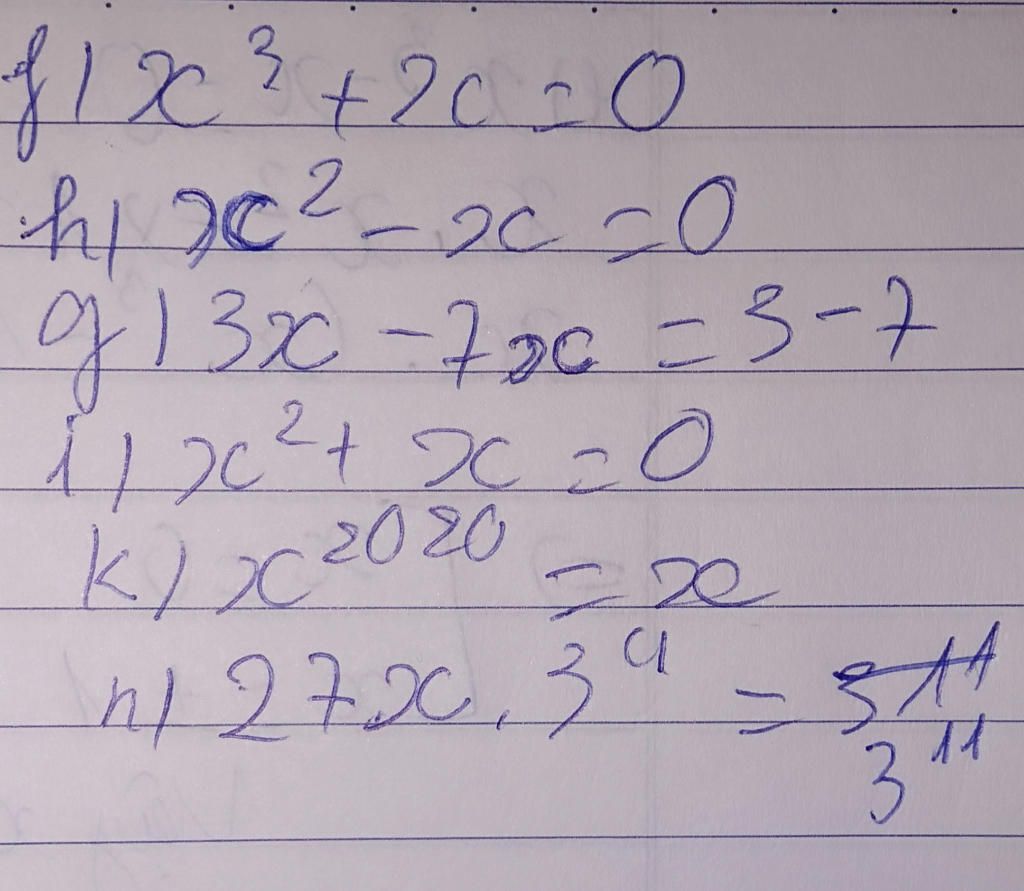 f) x³ + x = 0
h) x² - x = 0
g) 3x - 7x = 3 - 7
i) x² + x = 0
k) x²⁰²⁰ = x
n) 27x . 3⁹ = ~~3¹¹~~
3¹¹